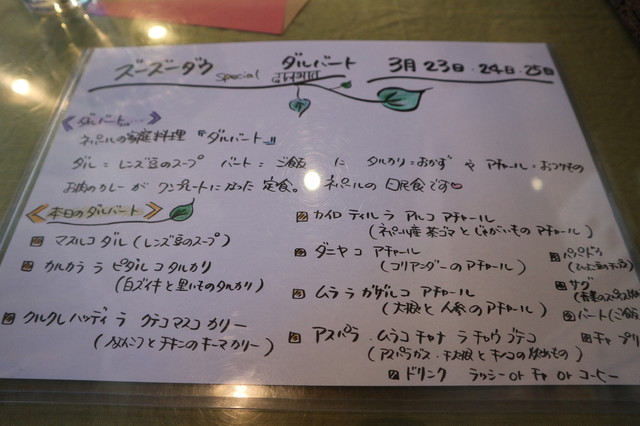 ズーズーダウ special ダルバート दालभात 3月23日.24日.25日
《ダルバート....》
ネパールの家庭料理『ダルバート』
ダル=レンズ豆のスープ バート=ご飯 に タルカリ=おかず や アチャール=おつけもの
お肉のカレー が ワンプレートになった 定食。 ネパールの 国民食です♡
《本日のダルバート》
マスルコ ダル (レンズ豆のスープ)
カルカラ ラ ピダル コ タルカリ
(白ズイキと里いものタルカリ)
クルクレハッディ ラ クテコマスコ カリー
(ナンコツとチキンのキーマカリー)
カイロ ティル ラ アルコ アチャール
(ネパール産 茶ゴマとじゃがいものアチャール)
ダニヤ コ アチャール
(コリアンダーのアチャール)
ムラ ラ ガダルコ アチャール
(大根と人参のアチャール)
アスパラ . ムラコ チャナ ラ チャウ ブテコ
(アスパラガス・干大根とキノコの炒めもの)
パパドゥ
サグ
バート(ご飯
チャ プリ
ドリンク ラッシー or チャ or コーヒー